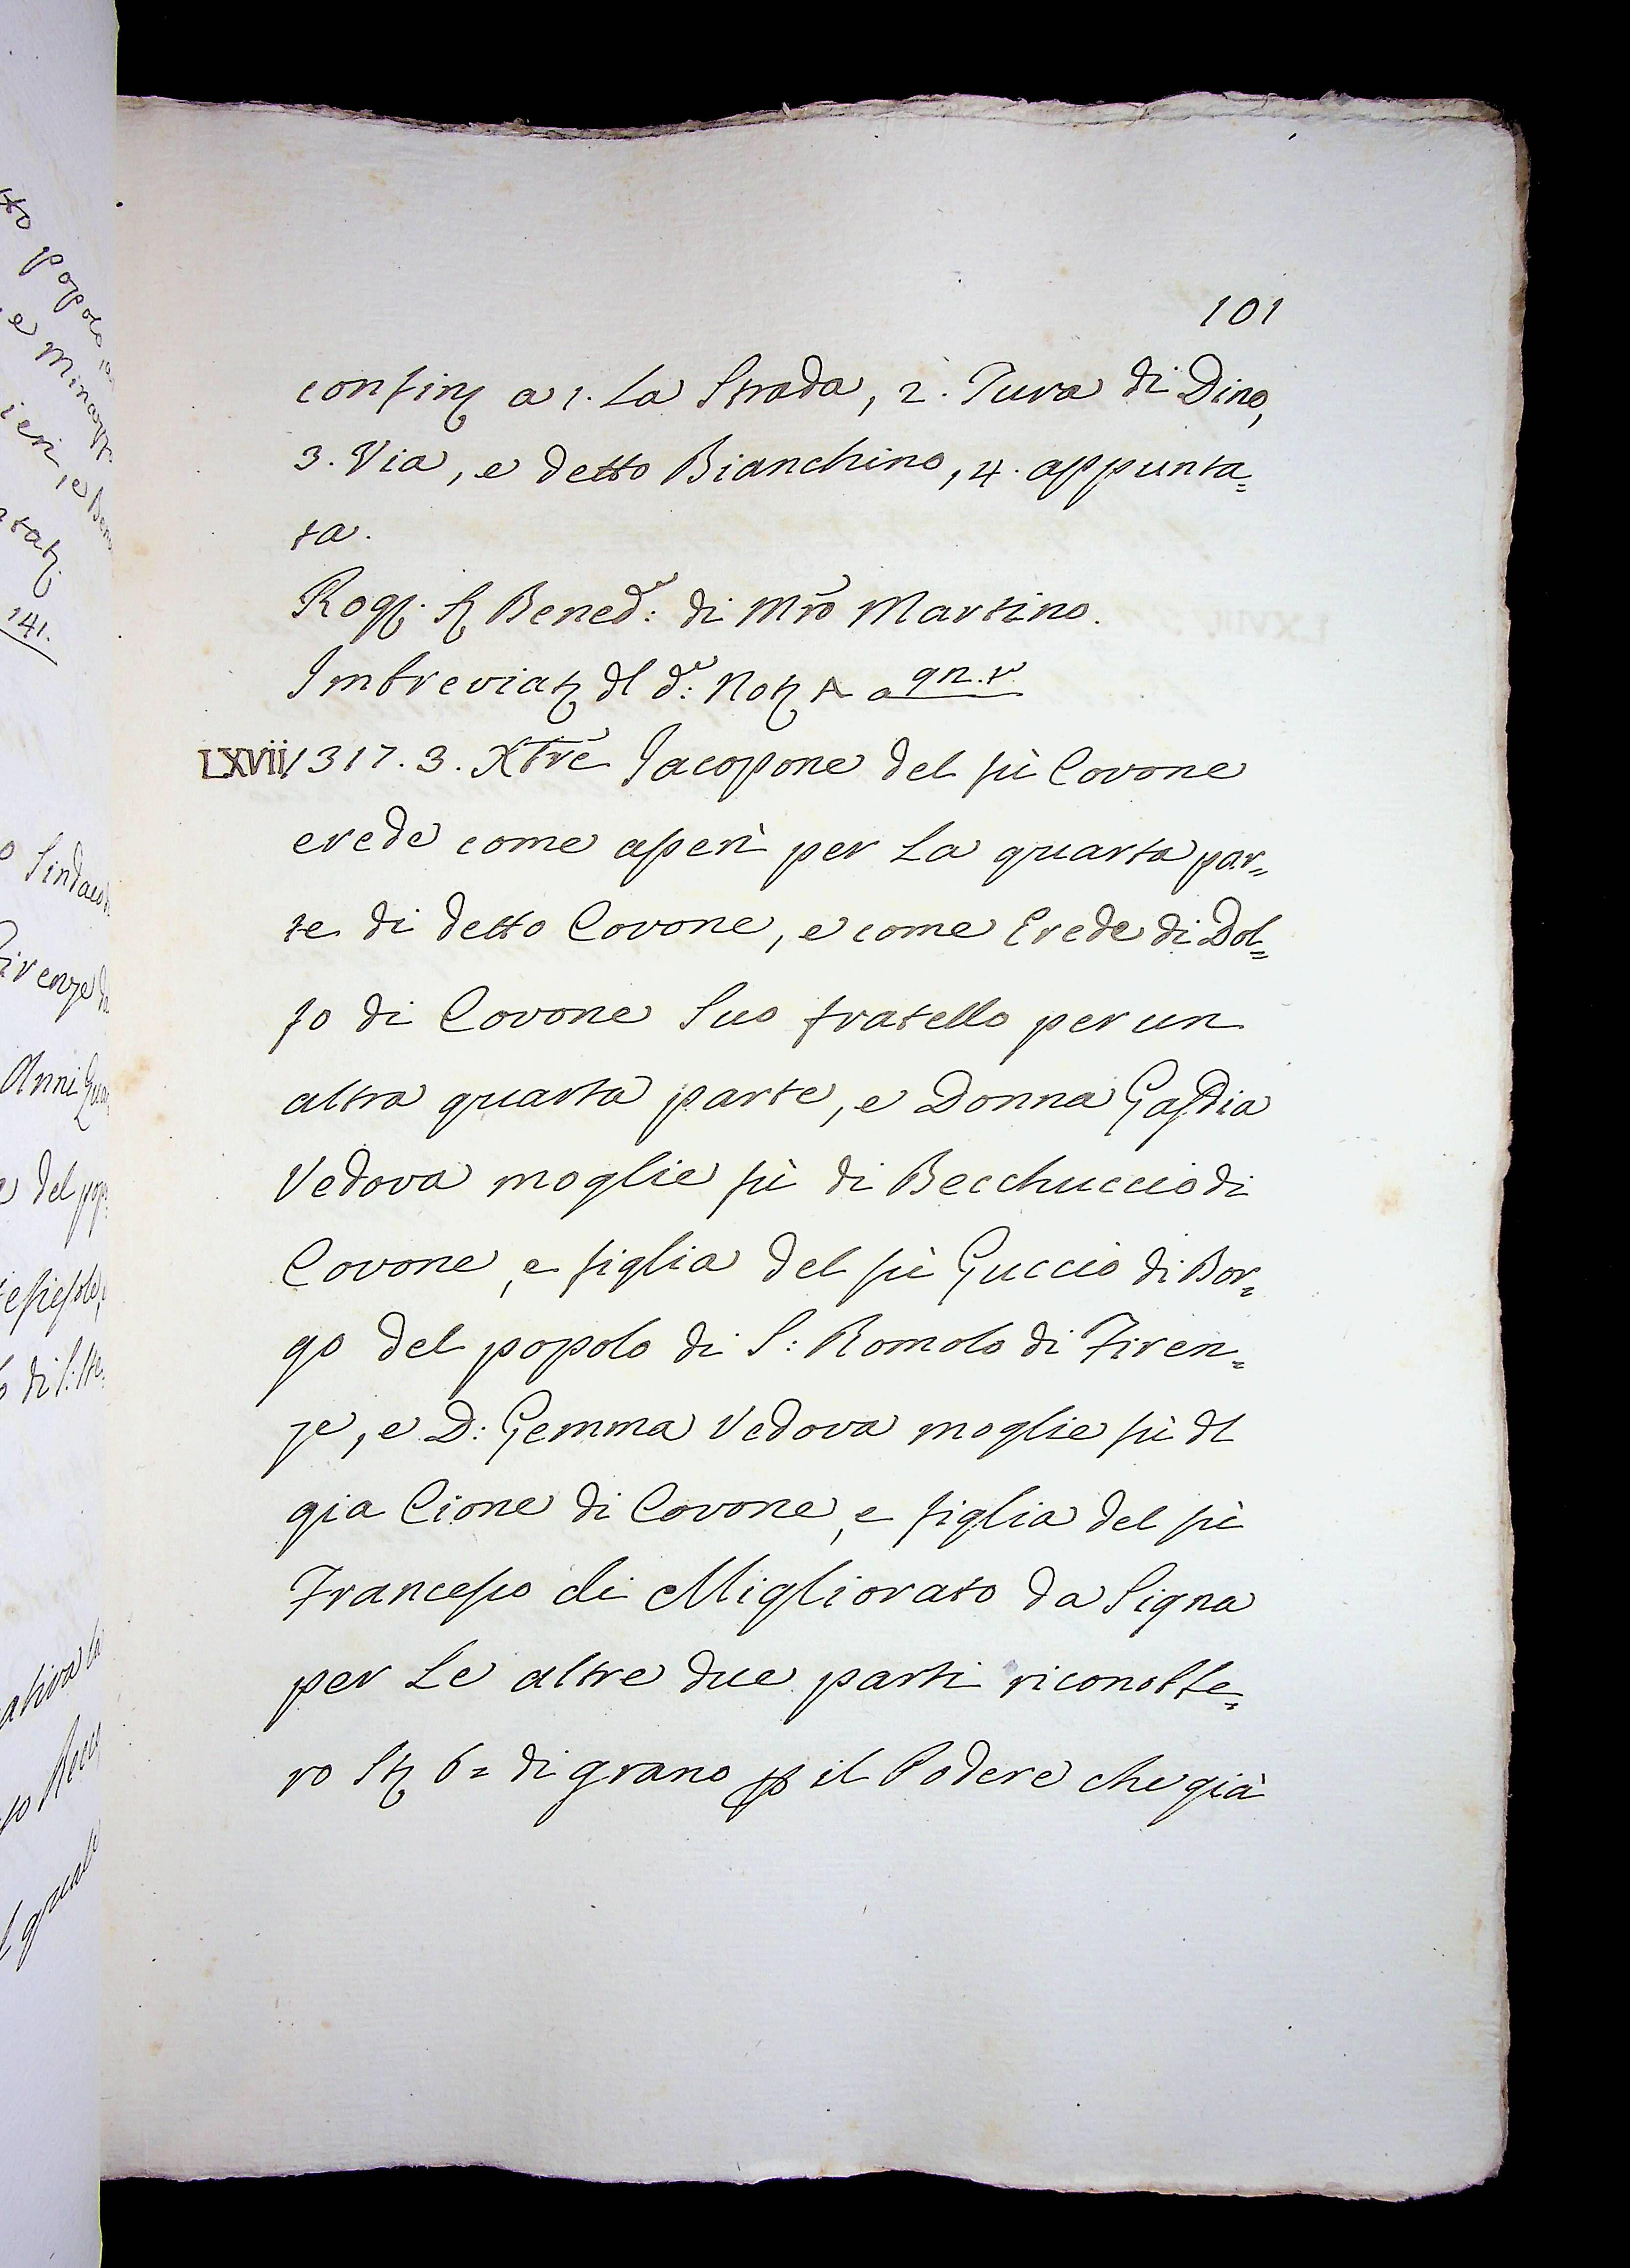 101
confin: a 1. La Strada, 2. Tura di Dino,
3. Via, e detto Bianchino, 4. appunta=
ta.
Rog: S: Bened: di Mro Martino.
Imbreviat: dl d: Not: A a
LXVII 1317. 3. Xbre Jacopone del fù Covone
erede come aserì per La quarta par=
te di detto Covone, e come Erede di Dol=
fo di Covone Suo fratello per un
altra quarta parte, e Donna Gasdia
Vedova moglie fù di Becchuccio di
Covone, e figlia del fù Guccio di Bor=
go del popolo di S: Romolo di Firen=
ze, e D: Gemma Vedova moglie fù dl
gia Cione di Covone, e figlia del fù
Francesco di Migliorato da Signa
per Le altre due parti riconobbe=
ro St: 6= di grano p il Podere che già
to popolo
e Mina
ieri, e Ben
141.
o Sindaco
irenze
Anni
del pop
di S: Ste
ativa la